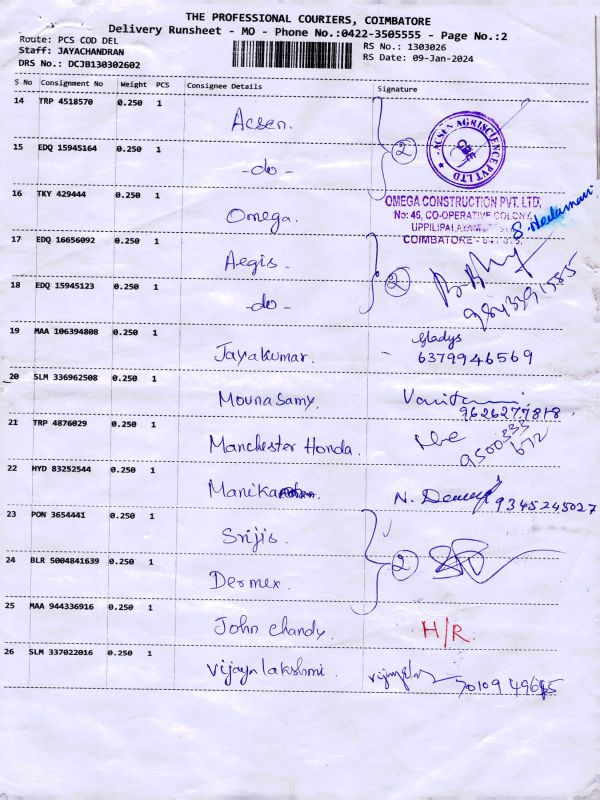 THE PROFESSIONAL COURIERS, COIMBATORE
Delivery Runsheet - MO - Phone No.:0422-3505555 - Page No.:2
Route: PCS COD DEL
Staff: JAYACHANDRAN
DRS No.: DCJB130302602
RS No.: 1303026
RS Date: 09-Jan-2024
S No Consignment No Weight PCS Consignee Details Signature
14 TRP 4518570 0.250 1
Acsen.
2
ACSEN AGRISCIENCE PVT LTD
15 EDQ 15945164 0.250 1
-do-
16 TKY 429444 0.250 1
Omega.
OMEGA CONSTRUCTION PVT. LTD,
No: 46, CO-OPERATIVE COLONY,
UPPILIPALAYAM
COIMBATORE - 641 015.
17 EDQ 16656092 0.250 1
Aegis.
2
18 EDQ 15945123 0.250 1
-do-
19 MAA 106394808 0.250 1
Jayakumar.
Gladys
6379946569
20 SLM 336962508 0.250 1
Mounasamy.
21 TRP 4876029 0.250 1
Manchester Honda.
9500333
672
22 HYD 83252544 0.250 1
9345245027
23 PON 3654441 0.250 1
Srijis.
2
24 BLR 5004841639 0.250 1
Dermex.
25 MAA 944336916 0.250 1
John chandy.
H/R
26 SLM 337022016 0.250 1
Vijayalakshmi.